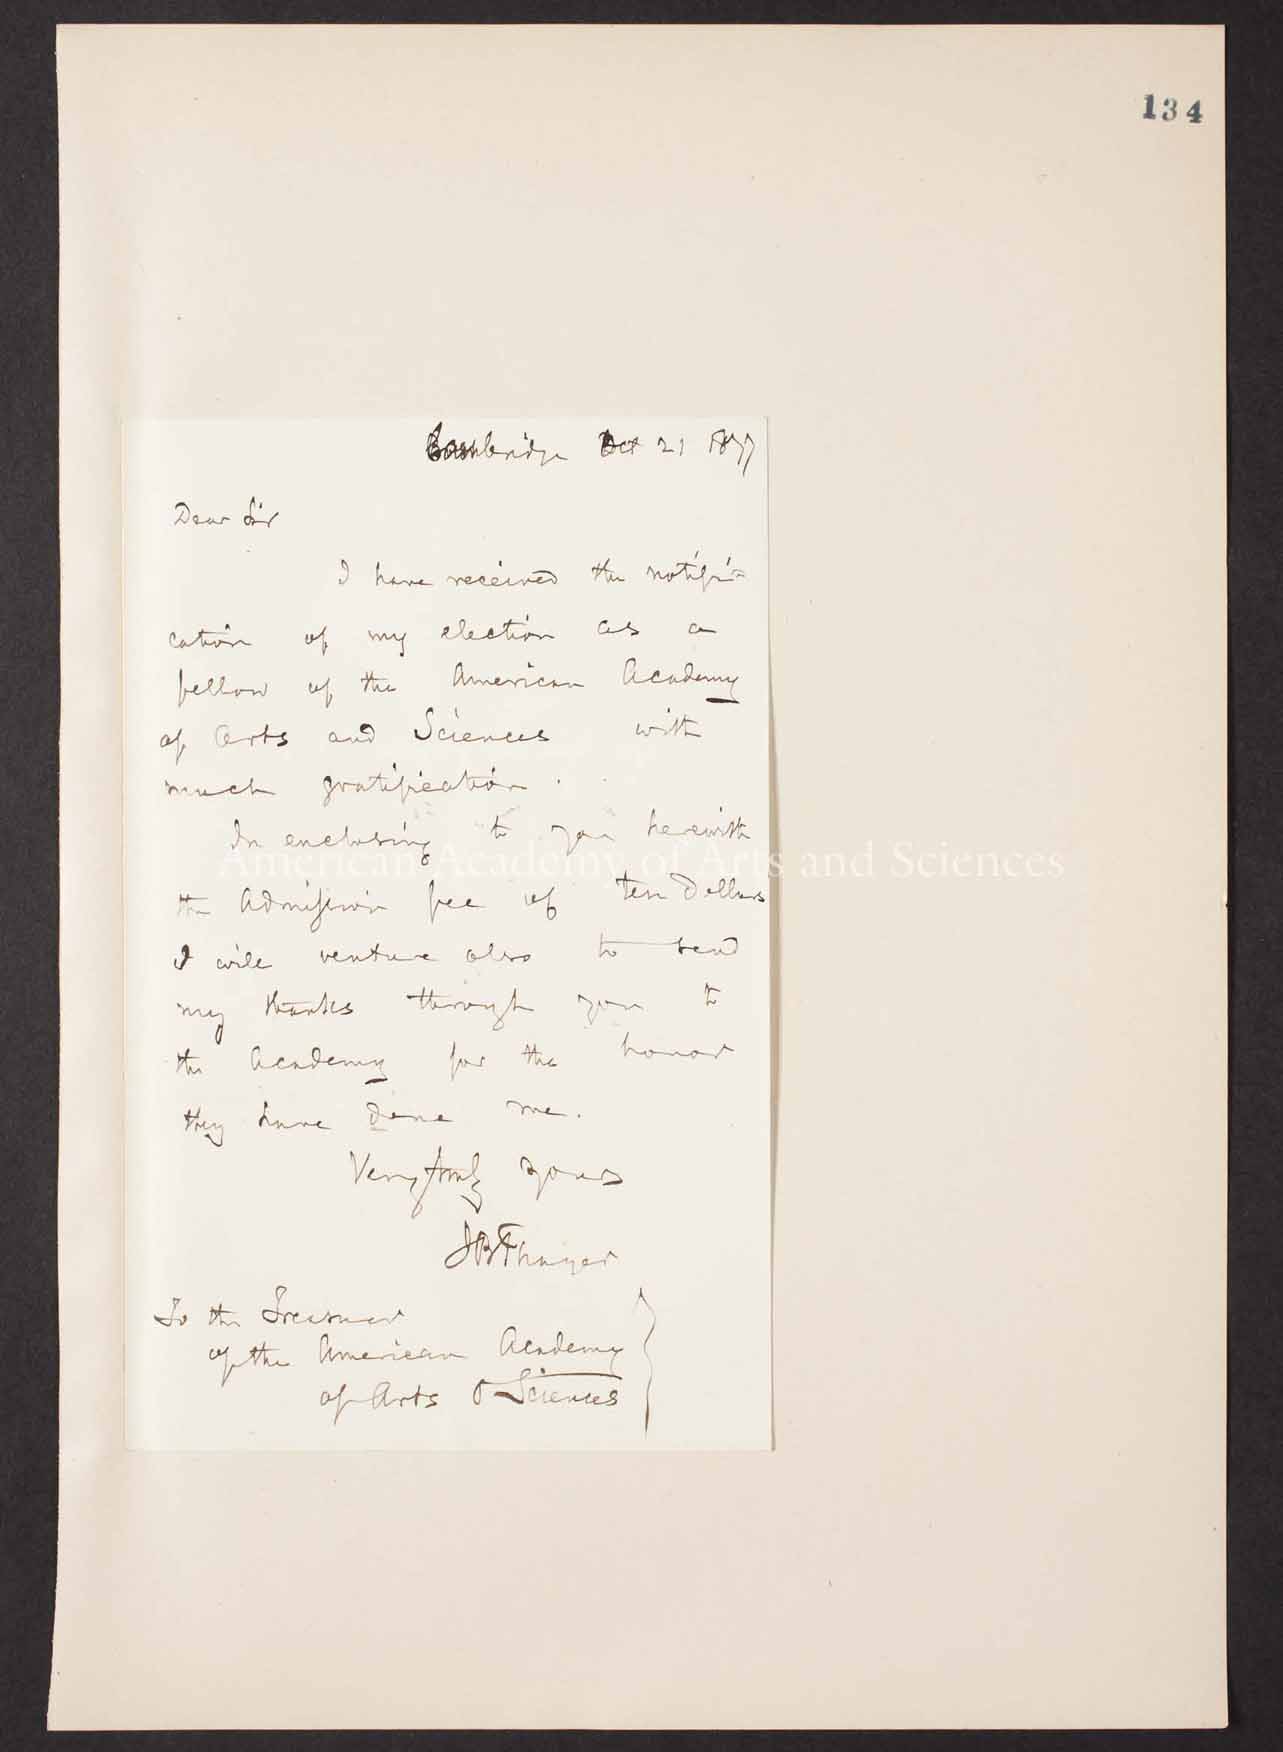 134
Cambridge Oct 21 1877
Dear Sir
I have received the notifi-
cation of my election as a
fellow of the American Academy
of Arts and Sciences with
much gratification.
In enclosing to you herewith
American Academy of Arts and Sciences
the admission fee of ten Dollars
I will venture also to send
my thanks through you to
the Academy for the honor
they have done me.
Very truly yours
J B Thayer
To the Treasurer
of the American Academy
of Arts & Sciences